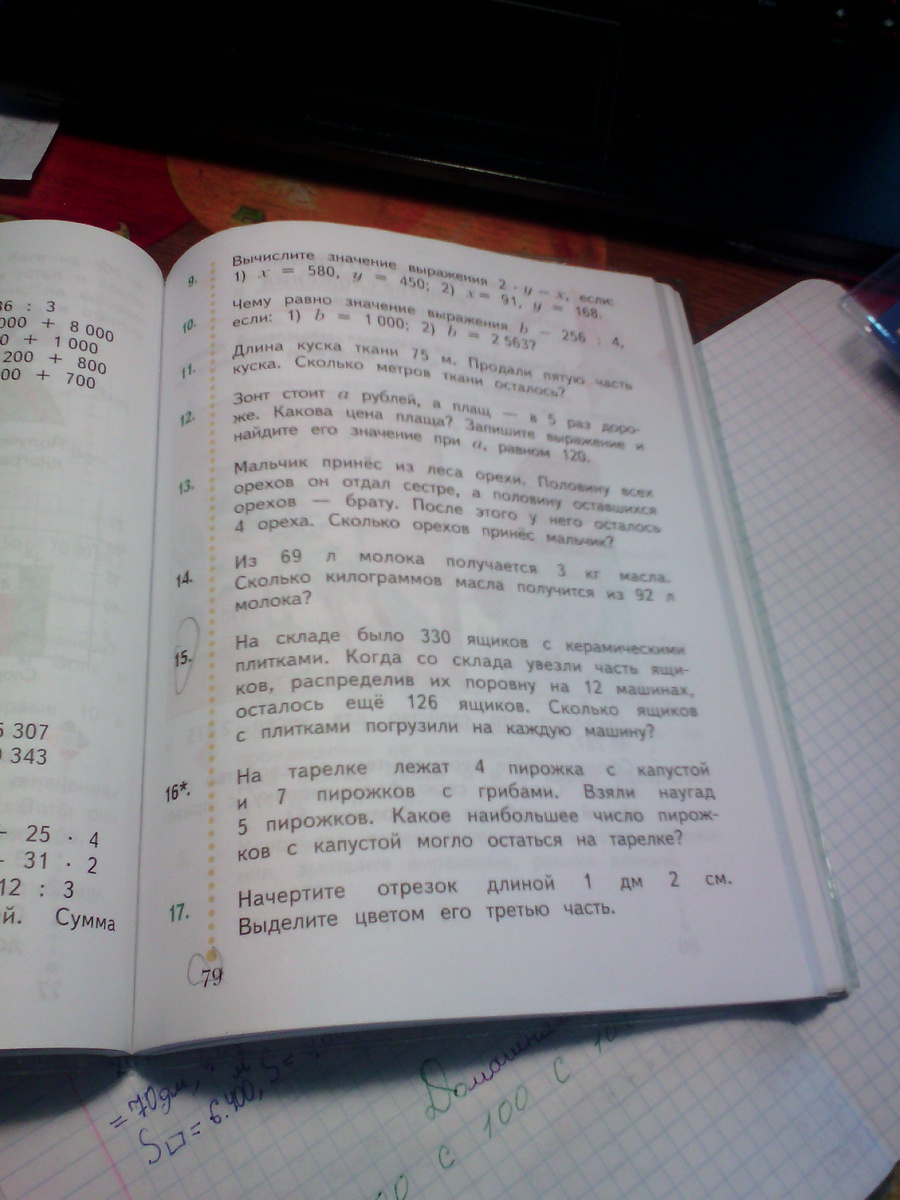 36 : 3
000 + 8 000
0 + 1 000
200 + 800
00 + 700
5 307
343
+ 25 · 4
31 · 2
12 : 3
й. Сумма
9. Вычислите значение выражения 2 · y − x, если:
1) x = 580, y = 450; 2) x = 91, y = 168.
10. Чему равно значение выражения b − 256 : 4,
если: 1) b = 1 000; 2) b = 2 563?
11. Длина куска ткани 75 м. Продали пятую часть
куска. Сколько метров ткани осталось?
12. Зонт стоит a рублей, а плащ — в 5 раз доро-
же. Какова цена плаща? Запишите выражение и
найдите его значение при a, равном 120.
13. Мальчик принёс из леса орехи. Половину всех
орехов он отдал сестре, а половину оставшихся
орехов — брату. После этого у него осталось
4 ореха. Сколько орехов принёс мальчик?
14. Из 69 л молока получается 3 кг масла.
Сколько килограммов масла получится из 92 л
молока?
15. На складе было 330 ящиков с керамическими
плитками. Когда со склада увезли часть ящи-
ков, распределив их поровну на 12 машинах,
осталось ещё 126 ящиков. Сколько ящиков
с плитками погрузили на каждую машину?
16*. На тарелке лежат 4 пирожка с капустой
и 7 пирожков с грибами. Взяли наугад
5 пирожков. Какое наибольшее число пирож-
ков с капустой могло остаться на тарелке?
17. Начертите отрезок длиной 1 дм 2 см.
Выделите цветом его третью часть.
79
= 70 дм,
S□ = 6·400, S =
Домашн
00 с 100 с 10